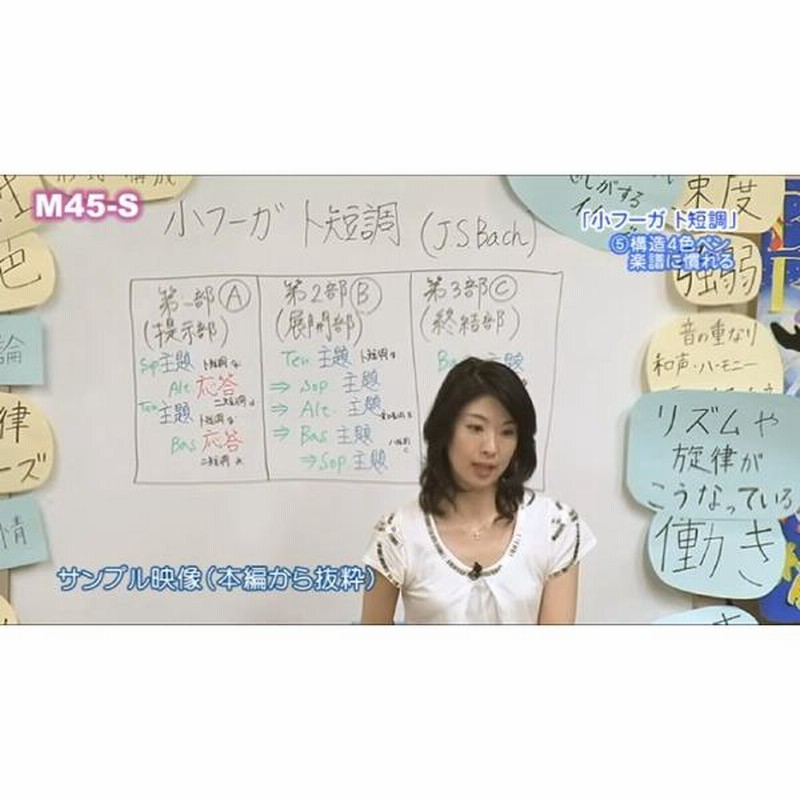 M45-S
小フーガ ト短調 (J.S Bach)
「小フーガ ト短調」
⑤構造4色ペン
楽譜に慣れる
第一部Ⓐ
(提示部)
Sop主題 ト短調
Alt 応答
ニ短調
Ten主題
ト短調
Bas 応答
ニ短調
第2部Ⓑ
(展開部)
Ten 主題 ト短調
⇒ Sop 主題
⇒ Alt. 主題
⇒ Bas 主題
⇒Sop 主題
第3部Ⓒ
(終結部)
主題
サンプル映像(本編から抜粋)
色
論
律
ーズ
情
がする
速度
強弱
音の重なり
和声・ハーモニー
リズムや
旋律が
こうなっている
働き